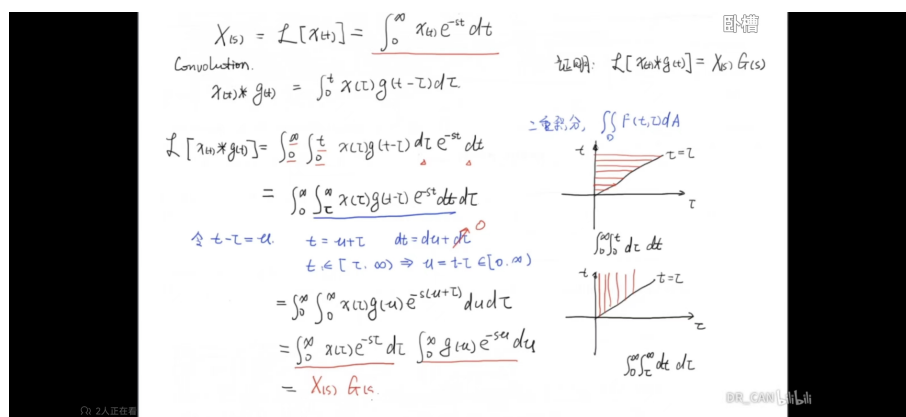 卧槽
X(s) = L[x(t)] = ∫₀^∞ x(t) e^{-st} dt
Convolution.
x(t) * g(t) = ∫₀^t x(τ) g(t-τ) dτ.
证明: L[x(t)*g(t)] = X(s) G(s)
L[x(t)*g(t)] = ∫₀^∞ ∫₀^t x(τ) g(t-τ) dτ e^{-st} dt
= ∫₀^∞ ∫_τ^∞ x(τ) g(t-τ) e^{-st} dt dτ
令 t-τ = u. t = u+τ dt = du + dτ 0
t ∈ [τ, ∞) ⇒ u = t-τ ∈ [0, ∞)
= ∫₀^∞ ∫₀^∞ x(τ) g(u) e^{-s(u+τ)} du dτ
= ∫₀^∞ x(τ) e^{-sτ} dτ ∫₀^∞ g(u) e^{-su} du
= X(s) G(s)
二重积分, ∬_D F(t,τ) dA
t
τ=t
τ
∫₀^∞ ∫₀^t dτ dt
t
t=τ
τ
∫₀^∞ ∫_τ^∞ dt dτ
2人正在看
DR_CAN bilibili